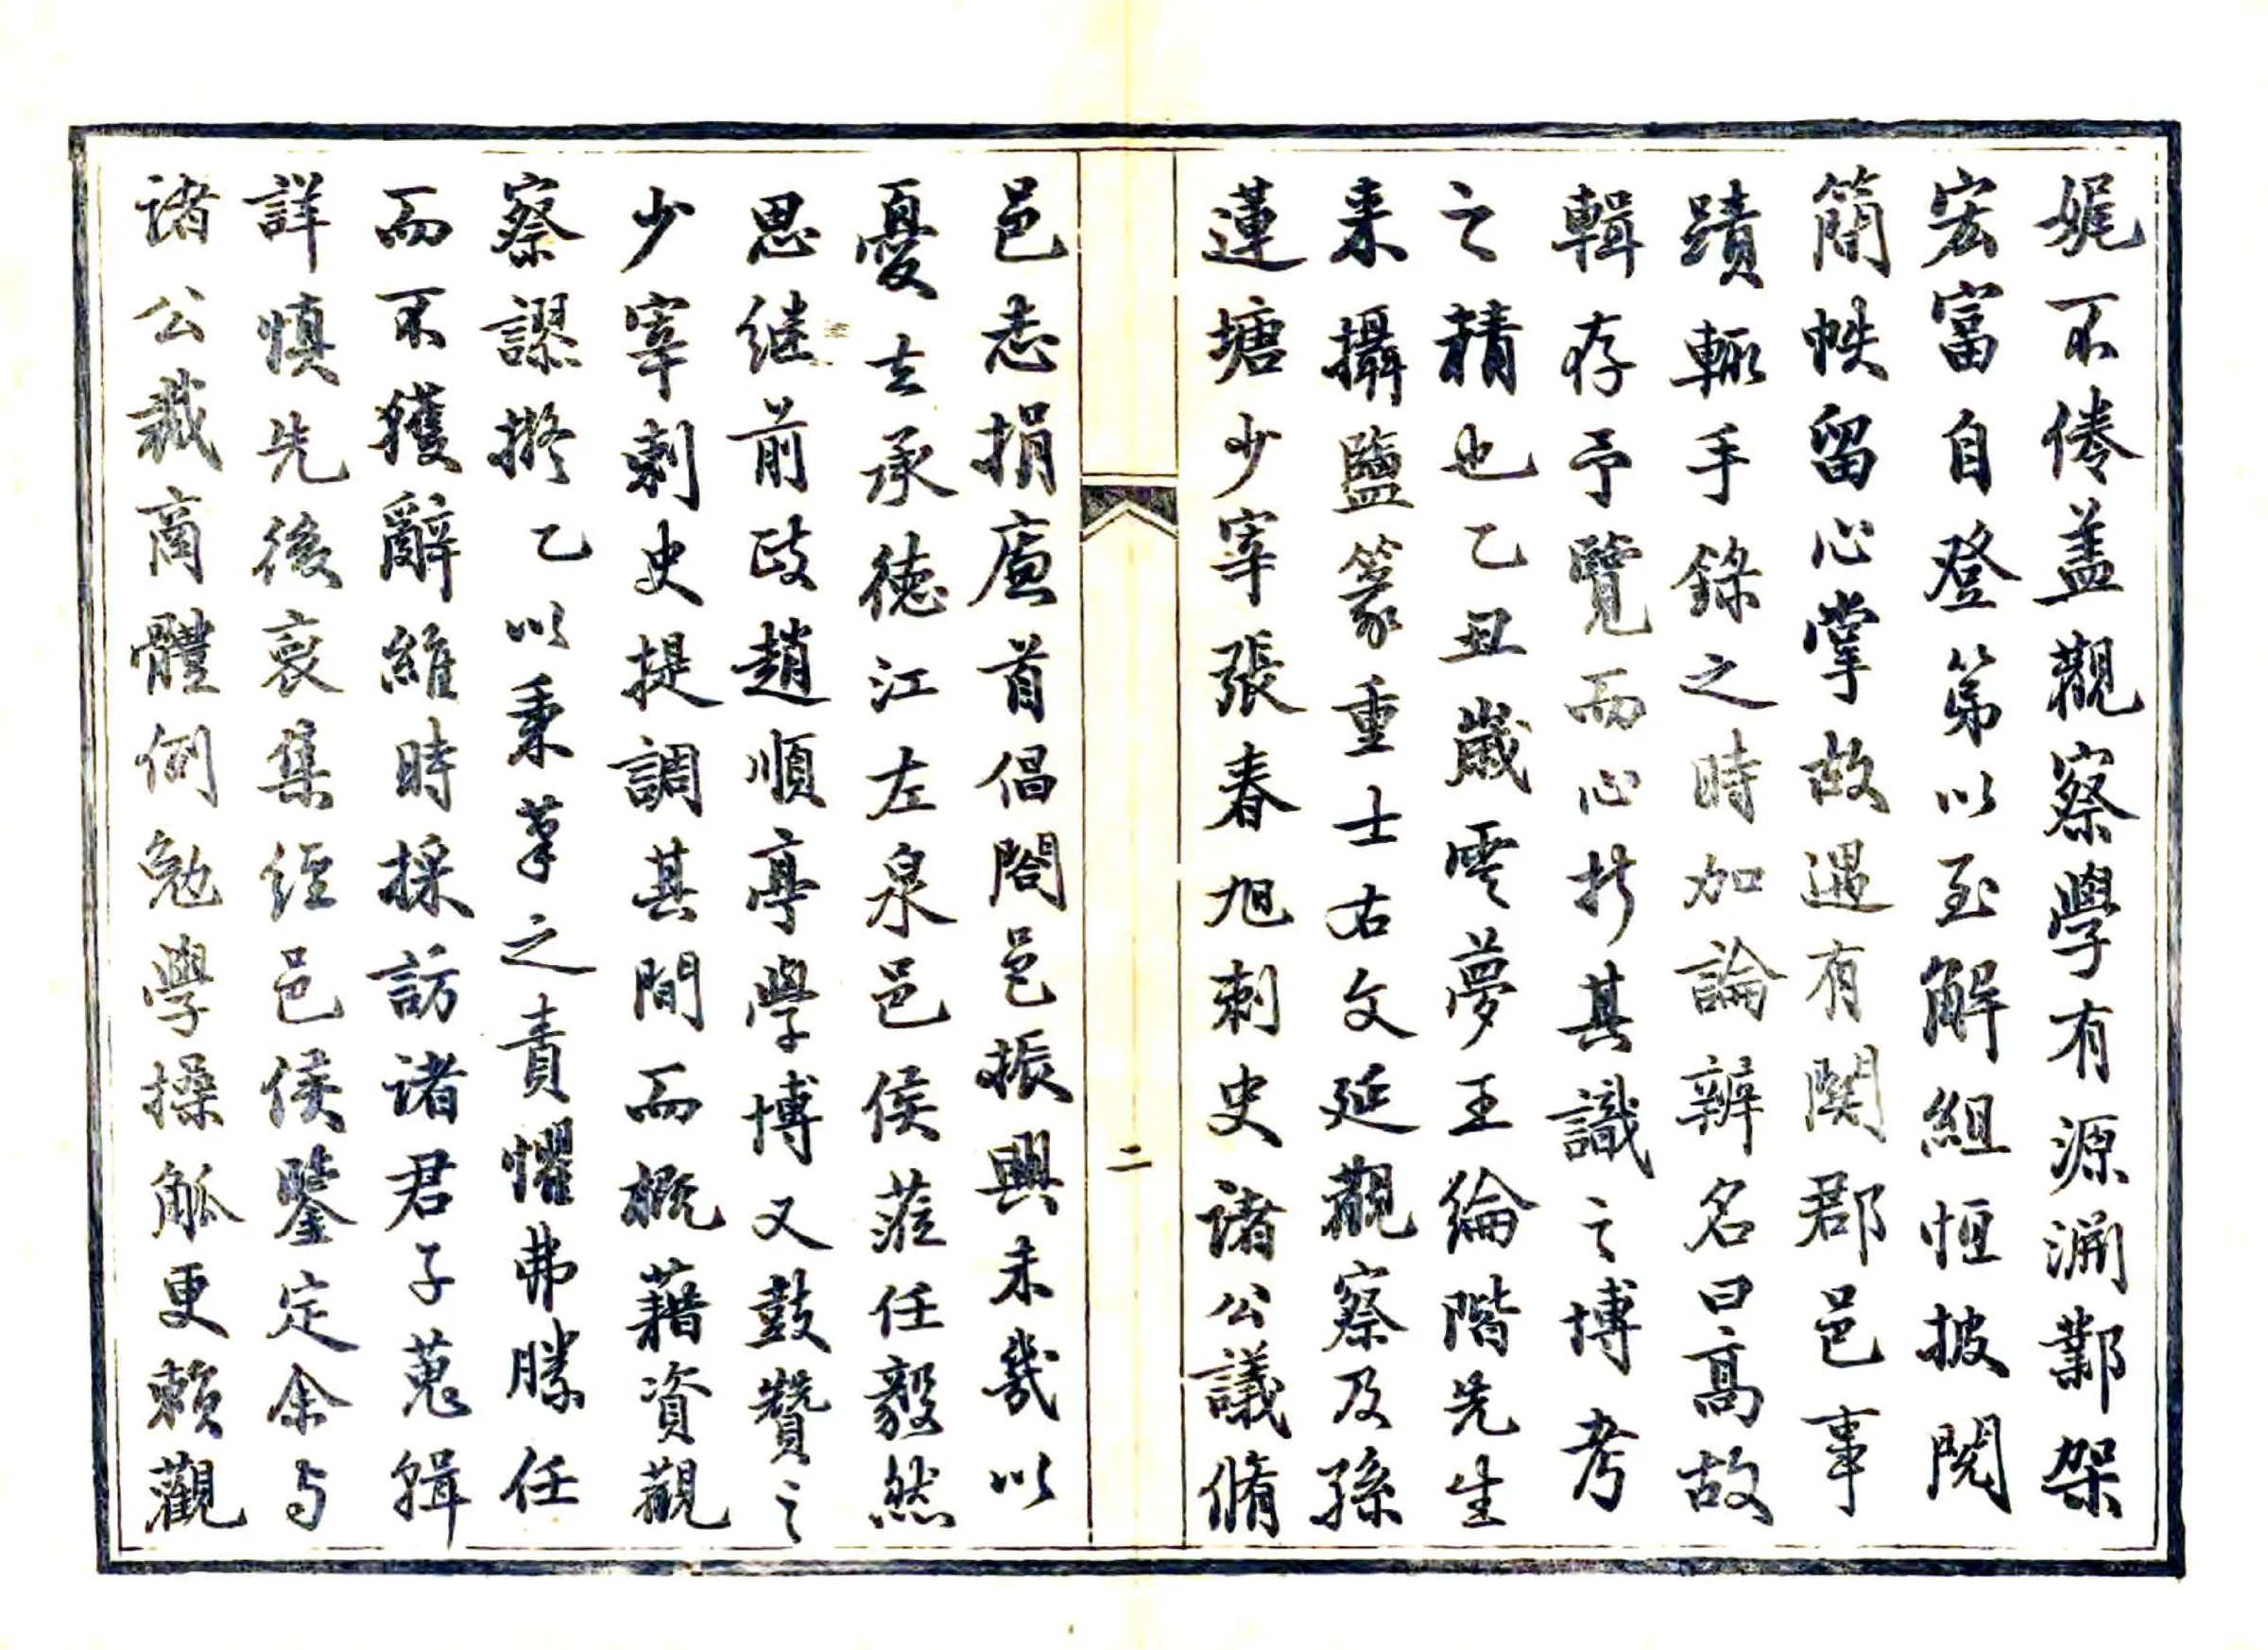 娓不倦盖觀察學有源淵鄴架
宏富自登第以至解組恒披閱
簡帙留心掌故遇有関郡邑事
蹟輒手錄之時加論辨名曰髙故
輯存予覽而心折其識之博考
之精也乙丑歲雲夢王綸階先生
来攝鹽篆重士右文延觀察及孫
蓮塘少宰張春旭刺史諸公議脩
二
邑志捐廉首倡閤邑振興未幾以
憂去承徳江左泉邑侯蒞任毅然
思継前政趙順亭學博又鼓贊之
少宰刺史提調其間而概藉資觀
察謬擬乙以秉筆之責懼弗勝任
而不獲辭維時採訪諸君子蒐輯
詳慎先後裒集經邑侯鑒定余与
諸公裁商體例勉學操觚更賴觀